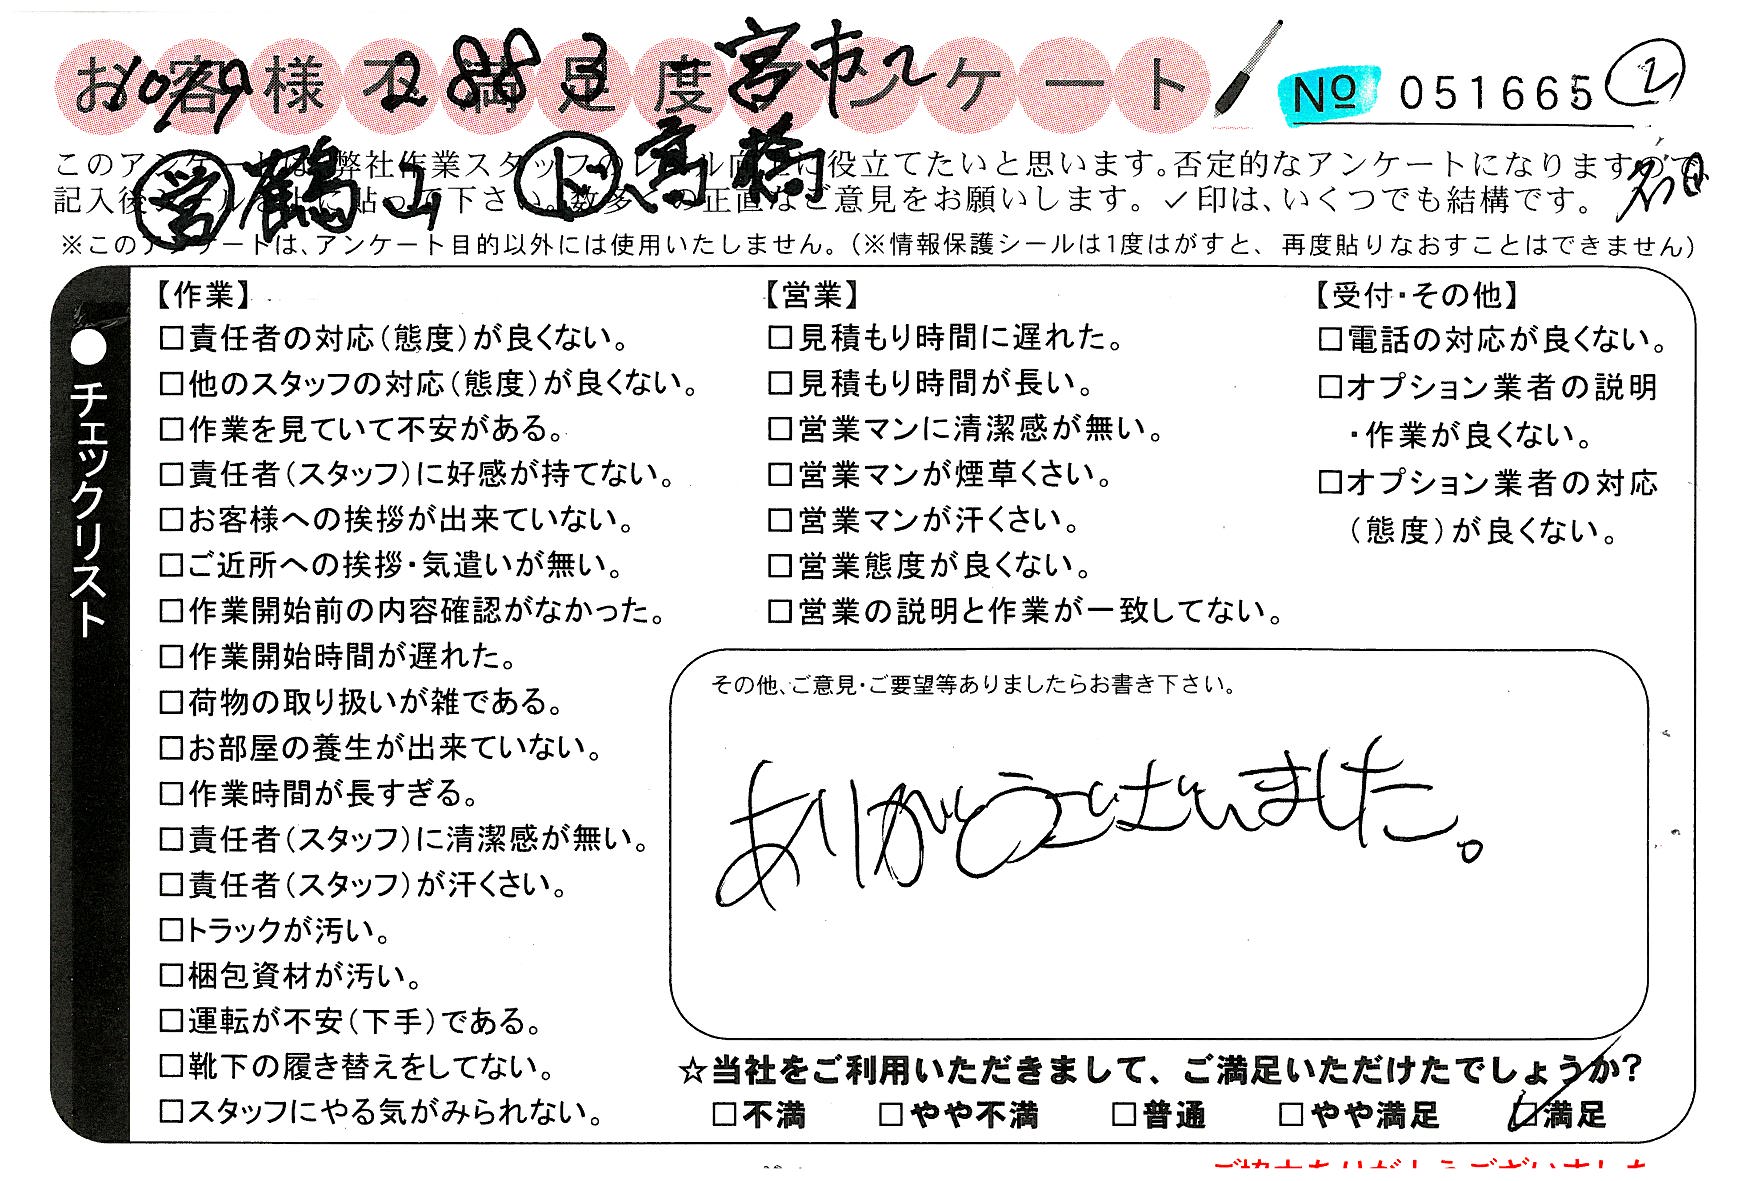 10/9 2883 宮市2
お客様不満足度アンケート
№ 051665 ②
このアンケートは、弊社作業スタッフのレベル向上に役立てたいと思います。否定的なアンケートになりますので
記入後シールを上に貼って下さい。数多くの正直なご意見をお願いします。✓印は、いくつでも結構です。
営 鶴山 ド 高橋
※このアンケートは、アンケート目的以外には使用いたしません。(※情報保護シールは1度はがすと、再度貼りなおすことはできません)
●チェックリスト
【作業】
□責任者の対応(態度)が良くない。
□他のスタッフの対応(態度)が良くない。
□作業を見ていて不安がある。
□責任者(スタッフ)に好感が持てない。
□お客様への挨拶が出来ていない。
□ご近所への挨拶・気遣いが無い。
□作業開始前の内容確認がなかった。
□作業開始時間が遅れた。
□荷物の取り扱いが雑である。
□お部屋の養生が出来ていない。
□作業時間が長すぎる。
□責任者(スタッフ)に清潔感が無い。
□責任者(スタッフ)が汗くさい。
□トラックが汚い。
□梱包資材が汚い。
□運転が不安(下手)である。
□靴下の履き替えをしてない。
□スタッフにやる気がみられない。
【営業】
□見積もり時間に遅れた。
□見積もり時間が長い。
□営業マンに清潔感が無い。
□営業マンが煙草くさい。
□営業マンが汗くさい。
□営業態度が良くない。
□営業の説明と作業が一致してない。
【受付・その他】
□電話の対応が良くない。
□オプション業者の説明
・作業が良くない。
□オプション業者の対応
(態度)が良くない。
その他、ご意見・ご要望等ありましたらお書き下さい。
ありがとうございました。
☆当社をご利用いただきまして、ご満足いただけたでしょうか?
□不満 □やや不満 □普通 □やや満足 ☑満足
ご協力ありがとうございました